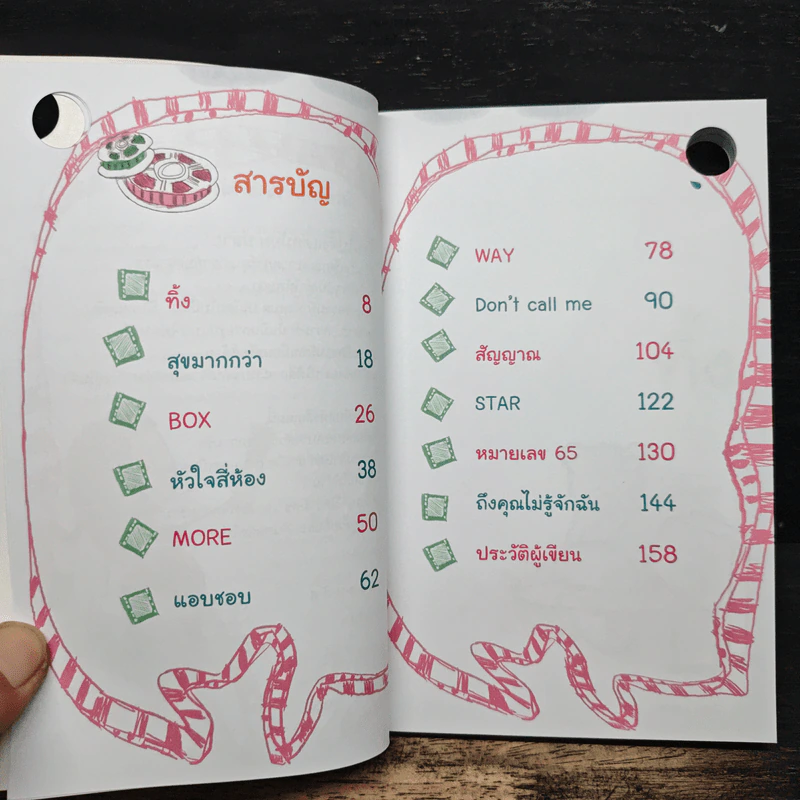 สารบัญ
ทิ้ง 8
สุขมากกว่า 18
BOX 26
หัวใจสี่ห้อง 38
MORE 50
แอบชอบ 62
WAY 78
Don't call me 90
สัญญาณ 104
STAR 122
หมายเลข 65 130
ถึงคุณไม่รู้จักฉัน 144
ประวัติผู้เขียน 158